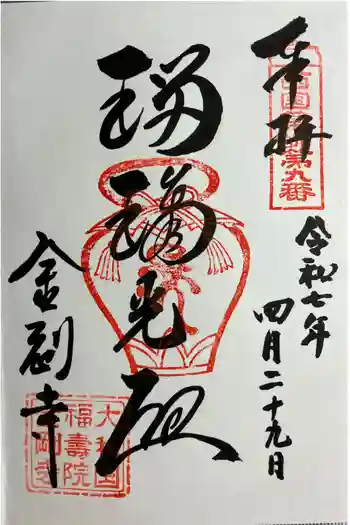 奉拝
西国薬師第九番
令和七年
四月二十九日
瑠璃光殿
金剛寺
福壽院